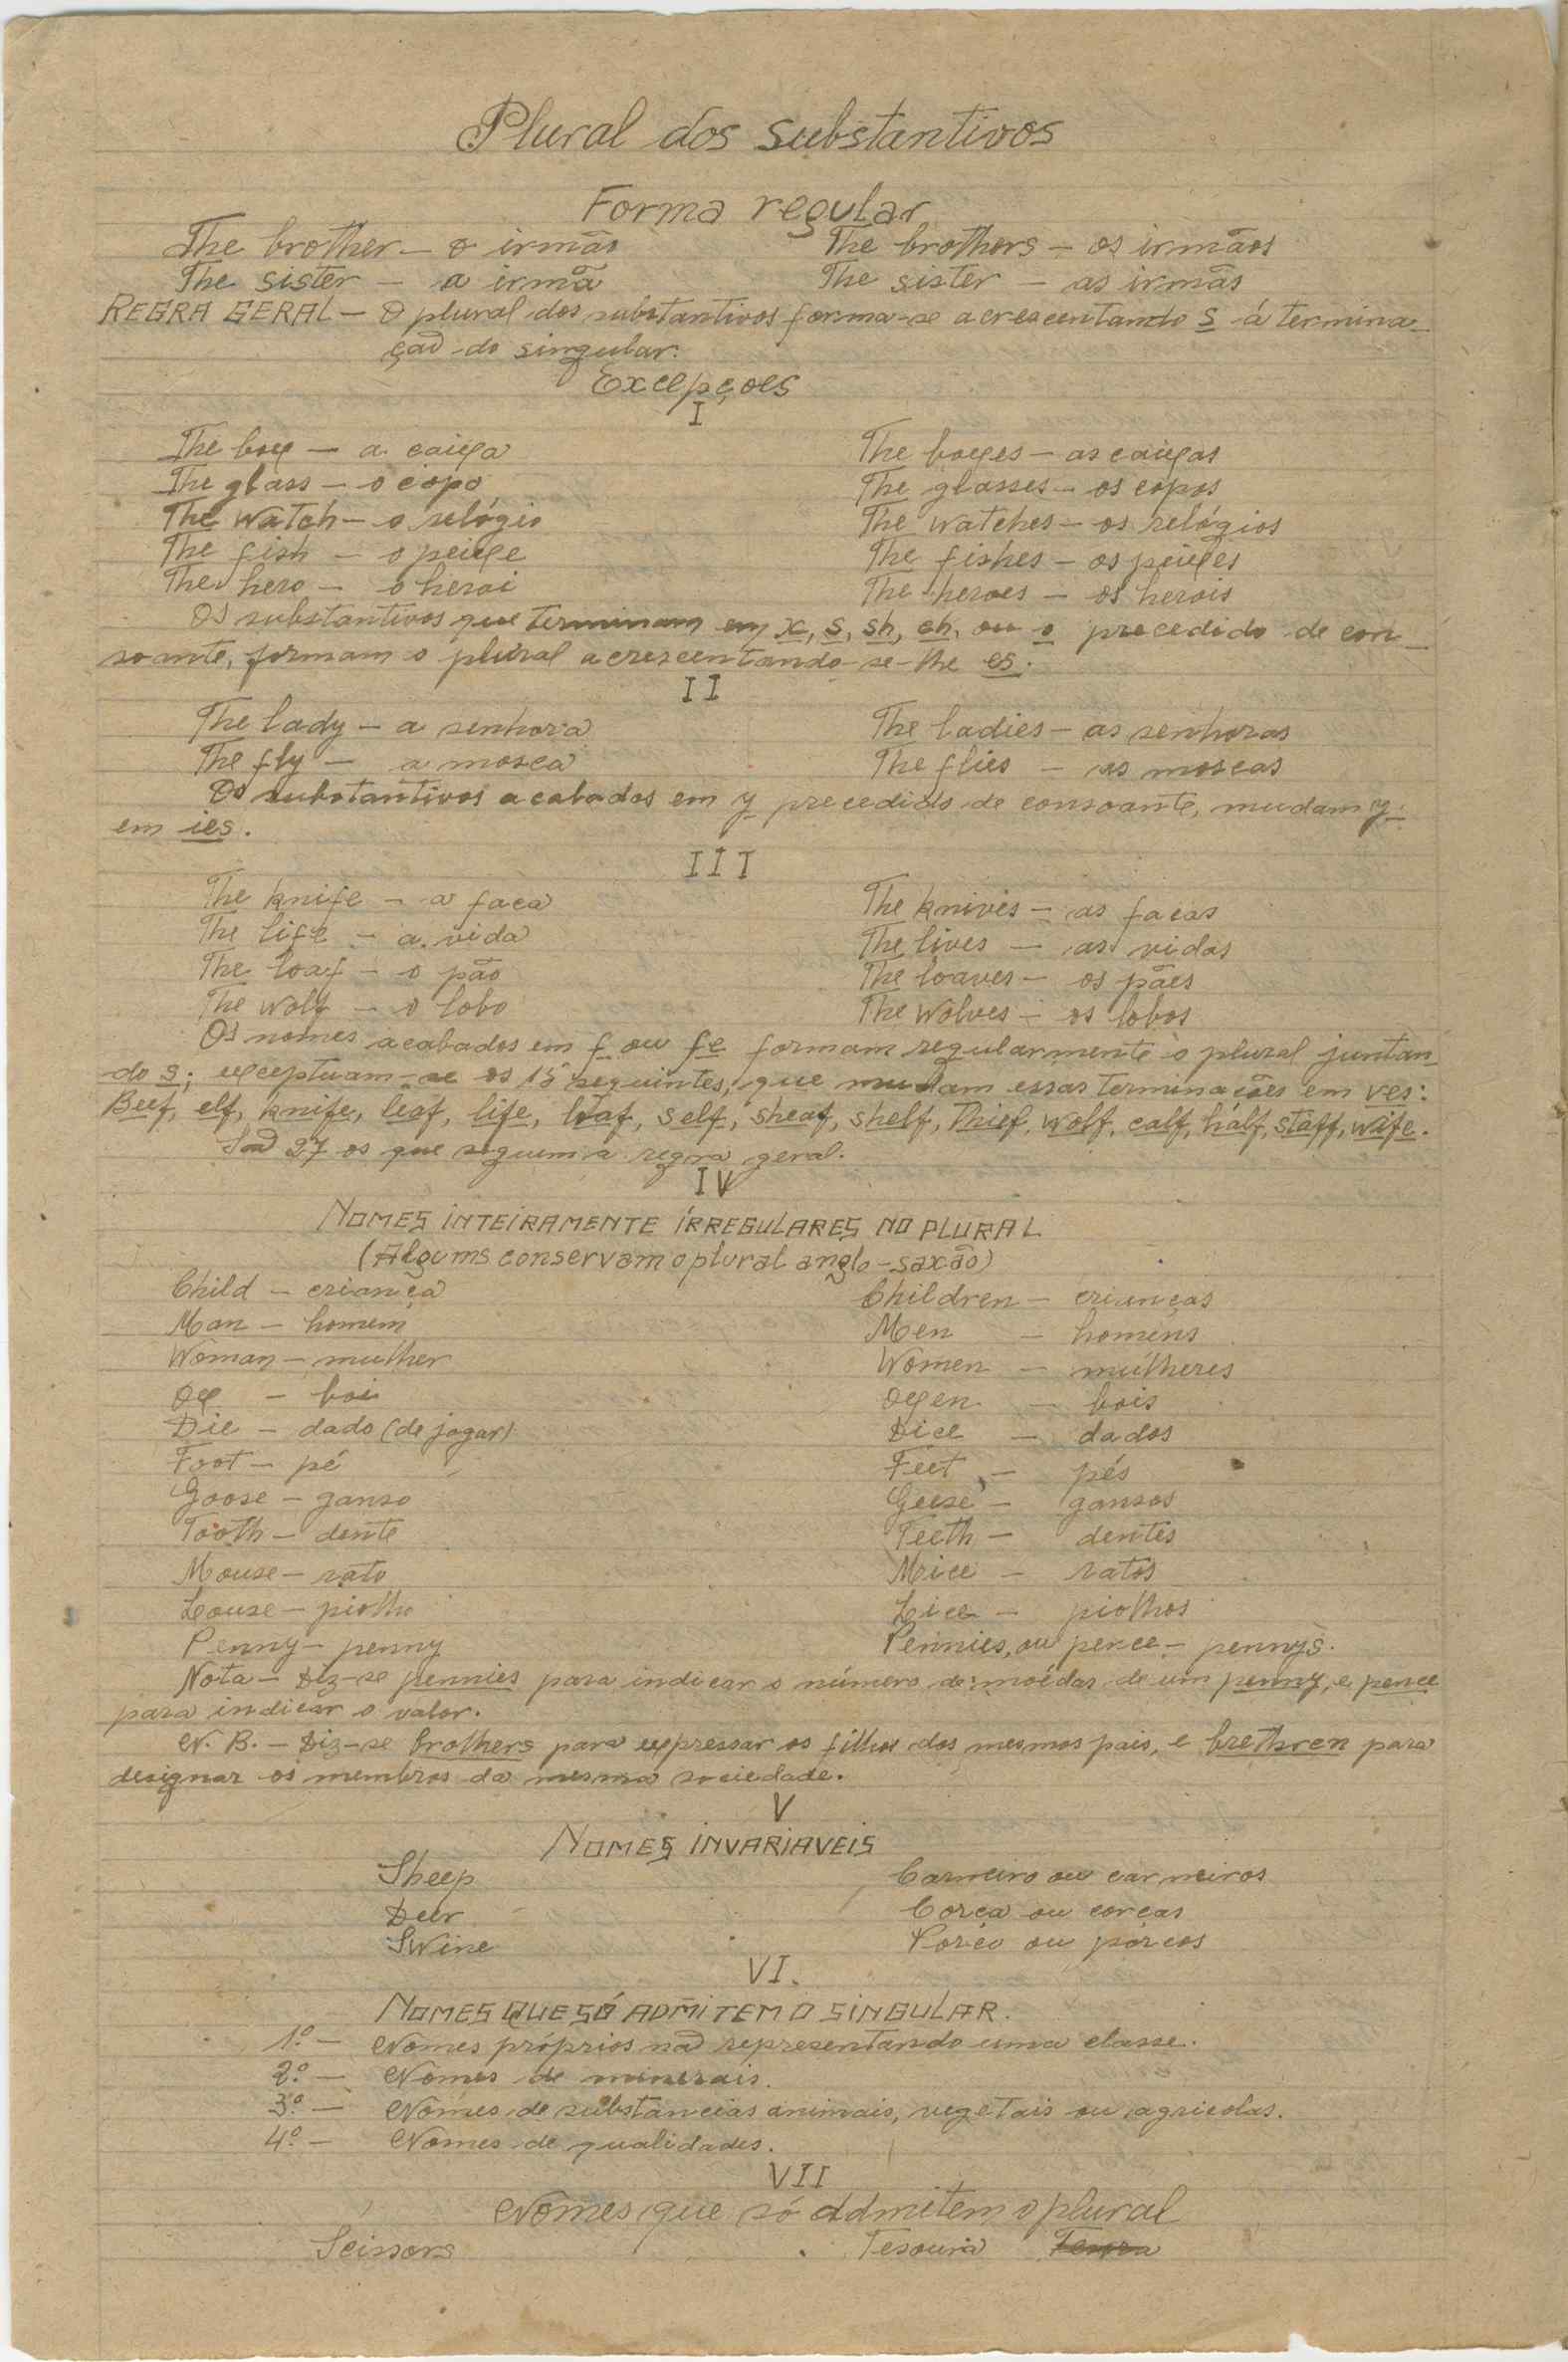 Plural dos substantivos
Forma regular
The brother — o irmão The brothers — os irmãos
The sister — a irmã The sister — as irmãs
REGRA GERAL — O plural dos substantivos forma-se acrescentando s á termina-
ção do singular.
Excepções
I
The box — a caixa The boxes — as caixas
The glass — o copo The glasses — os copos
The watch — o relógio The watches — os relógios
The fish — o peixe The fishes — os peixes
The hero — o heroi The heroes — os herois
Os substantivos que terminam em x, s, sh, ch, ou o precedido de con-
soante, formam o plural acrescentando-se-lhe es.
II
The lady — a senhora The ladies — as senhoras
The fly — a mosca The flies — as moscas
Os substantivos acabados em y precedidos de consoante, mudam y
em ies.
III
The knife — a faca The knives — as facas
The life — a vida The lives — as vidas
The loaf — o pão The loaves — os pães
The wolf — o lobo The wolves — os lobos
Os nomes acabados em f ou fe formam regularmente o plural juntan-
do s; exceptuam-se os 15 seguintes, que mudam essas terminações em ves:
Beef, elf, knife, leaf, life, loaf, self, sheaf, shelf, thief, wolf, calf, half, staff, wife.
São 27 os que seguem a regra geral.
IV
NOMES INTEIRAMENTE IRREGULARES NO PLURAL
(Alguns conservam o plural anglo-saxão)
Child — criança Children — crianças
Man — homem Men — homens
Woman — mulher Women — mulheres
Ox — boi Oxen — bois
Die — dado (de jogar) Dice — dados
Foot — pé Feet — pés
Goose — ganso Geese — gansos
Tooth — dente Teeth — dentes
Mouse — rato Mice — ratos
Louse — piolho Lice — piolhos
Penny — penny Pennies, ou pence — pennys.
Nota — Diz-se pennies para indicar o número de moedas de um penny, e pence
para indicar o valor.
N. B. — Diz-se brothers para expressar os filhos dos mesmos pais, e brethren para
designar os membros da mesma sociedade.
V
NOMES INVARIAVEIS
Sheep Carneiro ou carneiros
Deer Corça ou corças
Swine Porco ou porcos
VI.
NOMES QUE SÓ ADMITEM O SINGULAR.
1º — Nomes próprios não representando uma classe.
2º — Nomes de minerais.
3º — Nomes de substancias animais, vegetais ou agricolas.
4º — Nomes de qualidades.
VII
Nomes que só admitem o plural
Scissors Tesoura